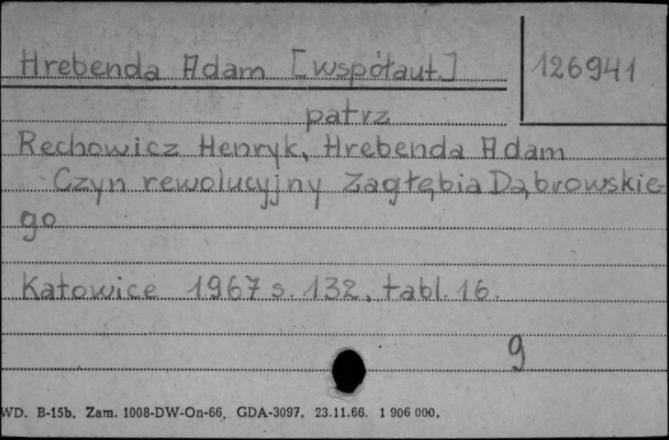 Hrebenda Adam [współaut.] 126941
patrz
Rechowicz Henryk, Hrebenda Adam
Czyn rewolucyjny Zagłębia Dąbrowskie-
go
Katowice 1967 s. 132, tabl. 16.
9
WD. B-15b. Zam. 1008-DW-On-66. GDA-3097. 23.11.66. 1 906 000.